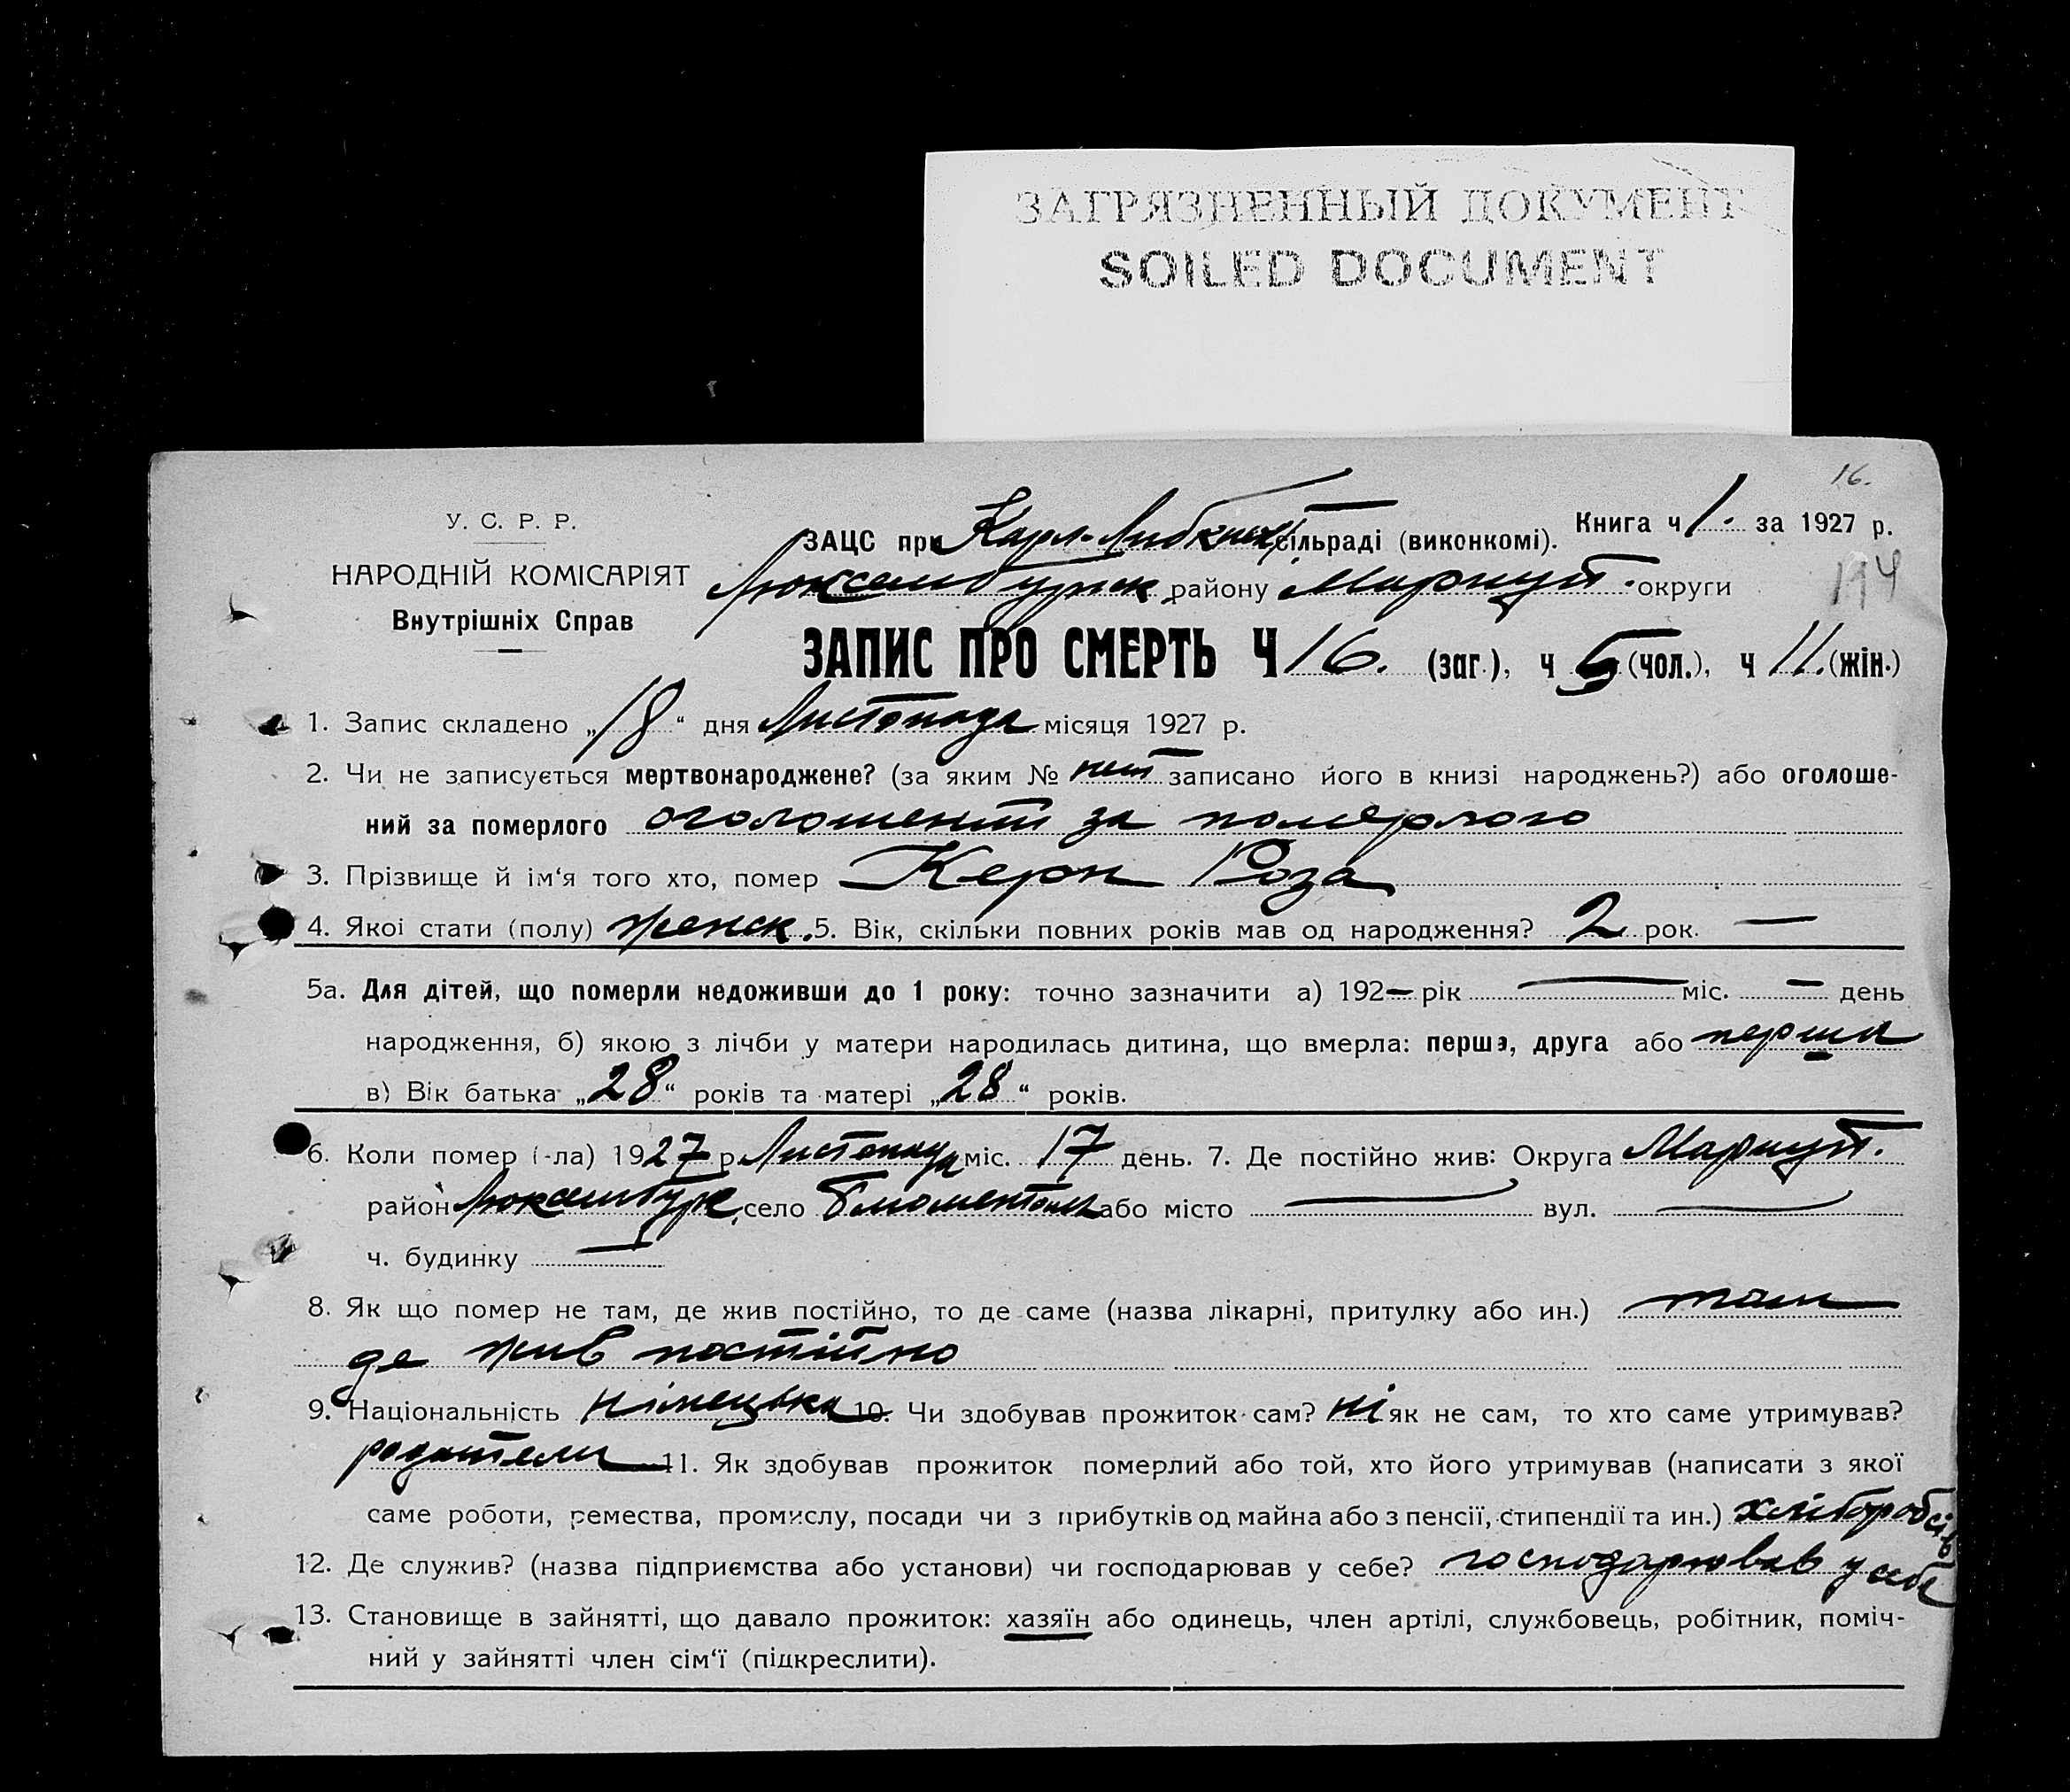 ЗАГРЯЗНЕННЫЙ ДОКУМЕНТ
SOILED DOCUMENT
16.
У. С. Р. Р.
НАРОДНІЙ КОМІСАРІЯТ
Внутрішніх Справ
ЗАЦС при Карл-Либкнехт сільраді (виконкомі). Книга ч 1. за 1927 р.
Люксембургск району Мариуп. округи
194
ЗАПИС ПРО СМЕРТЬ Ч 16. (заг.), ч 5 (чол.), ч 11. (жін.)
1. Запис складено „18“ дня Листопада місяця 1927 р.
2. Чи не записується мертвонароджене? (за яким № нет записано його в книзі народжень?) або оголоше-
ний за померлого за померлого
3. Прізвище й ім‘я того хто, помер Керн Роза
4. Якої стати (полу) женск. 5. Вік, скільки повних років мав од народження? 2 рок. —
5а. Для дітей, що померли недоживши до 1 року: точно зазначити а) 192— рік — міс. — день
народження, б) якою з лічби у матери народилась дитина, що вмерла: перша, друга або перша
в) Вік батька „28“ років та матері „28“ років.
6. Коли помер (-ла) 1927 р. Листопада міс. 17 день. 7. Де постійно жив: Округа Мариуп.
район село або місто — вул. —
ч. будинку —
8. Як що помер не там, де жив постійно, то де саме (назва лікарні, притулку або ин.) там
де жив постійно
9. Національність німецька 10. Чи здобував прожиток сам? ні як не сам, то хто саме утримував?
родители 11. Як здобував прожиток померлий або той, хто його утримував (написати з якої
саме роботи, ремества, промислу, посади чи з прибутків од майна або з пенсії, стипендії та ин.)
12. Де служив? (назва підприємства або установи) чи господарював у себе? господарював у себе
13. Становище в зайнятті, що давало прожиток: хазяїн або одинець, член артілі, службовець, робітник, поміч-
ний у зайнятті член сім‘ї (підкреслити).